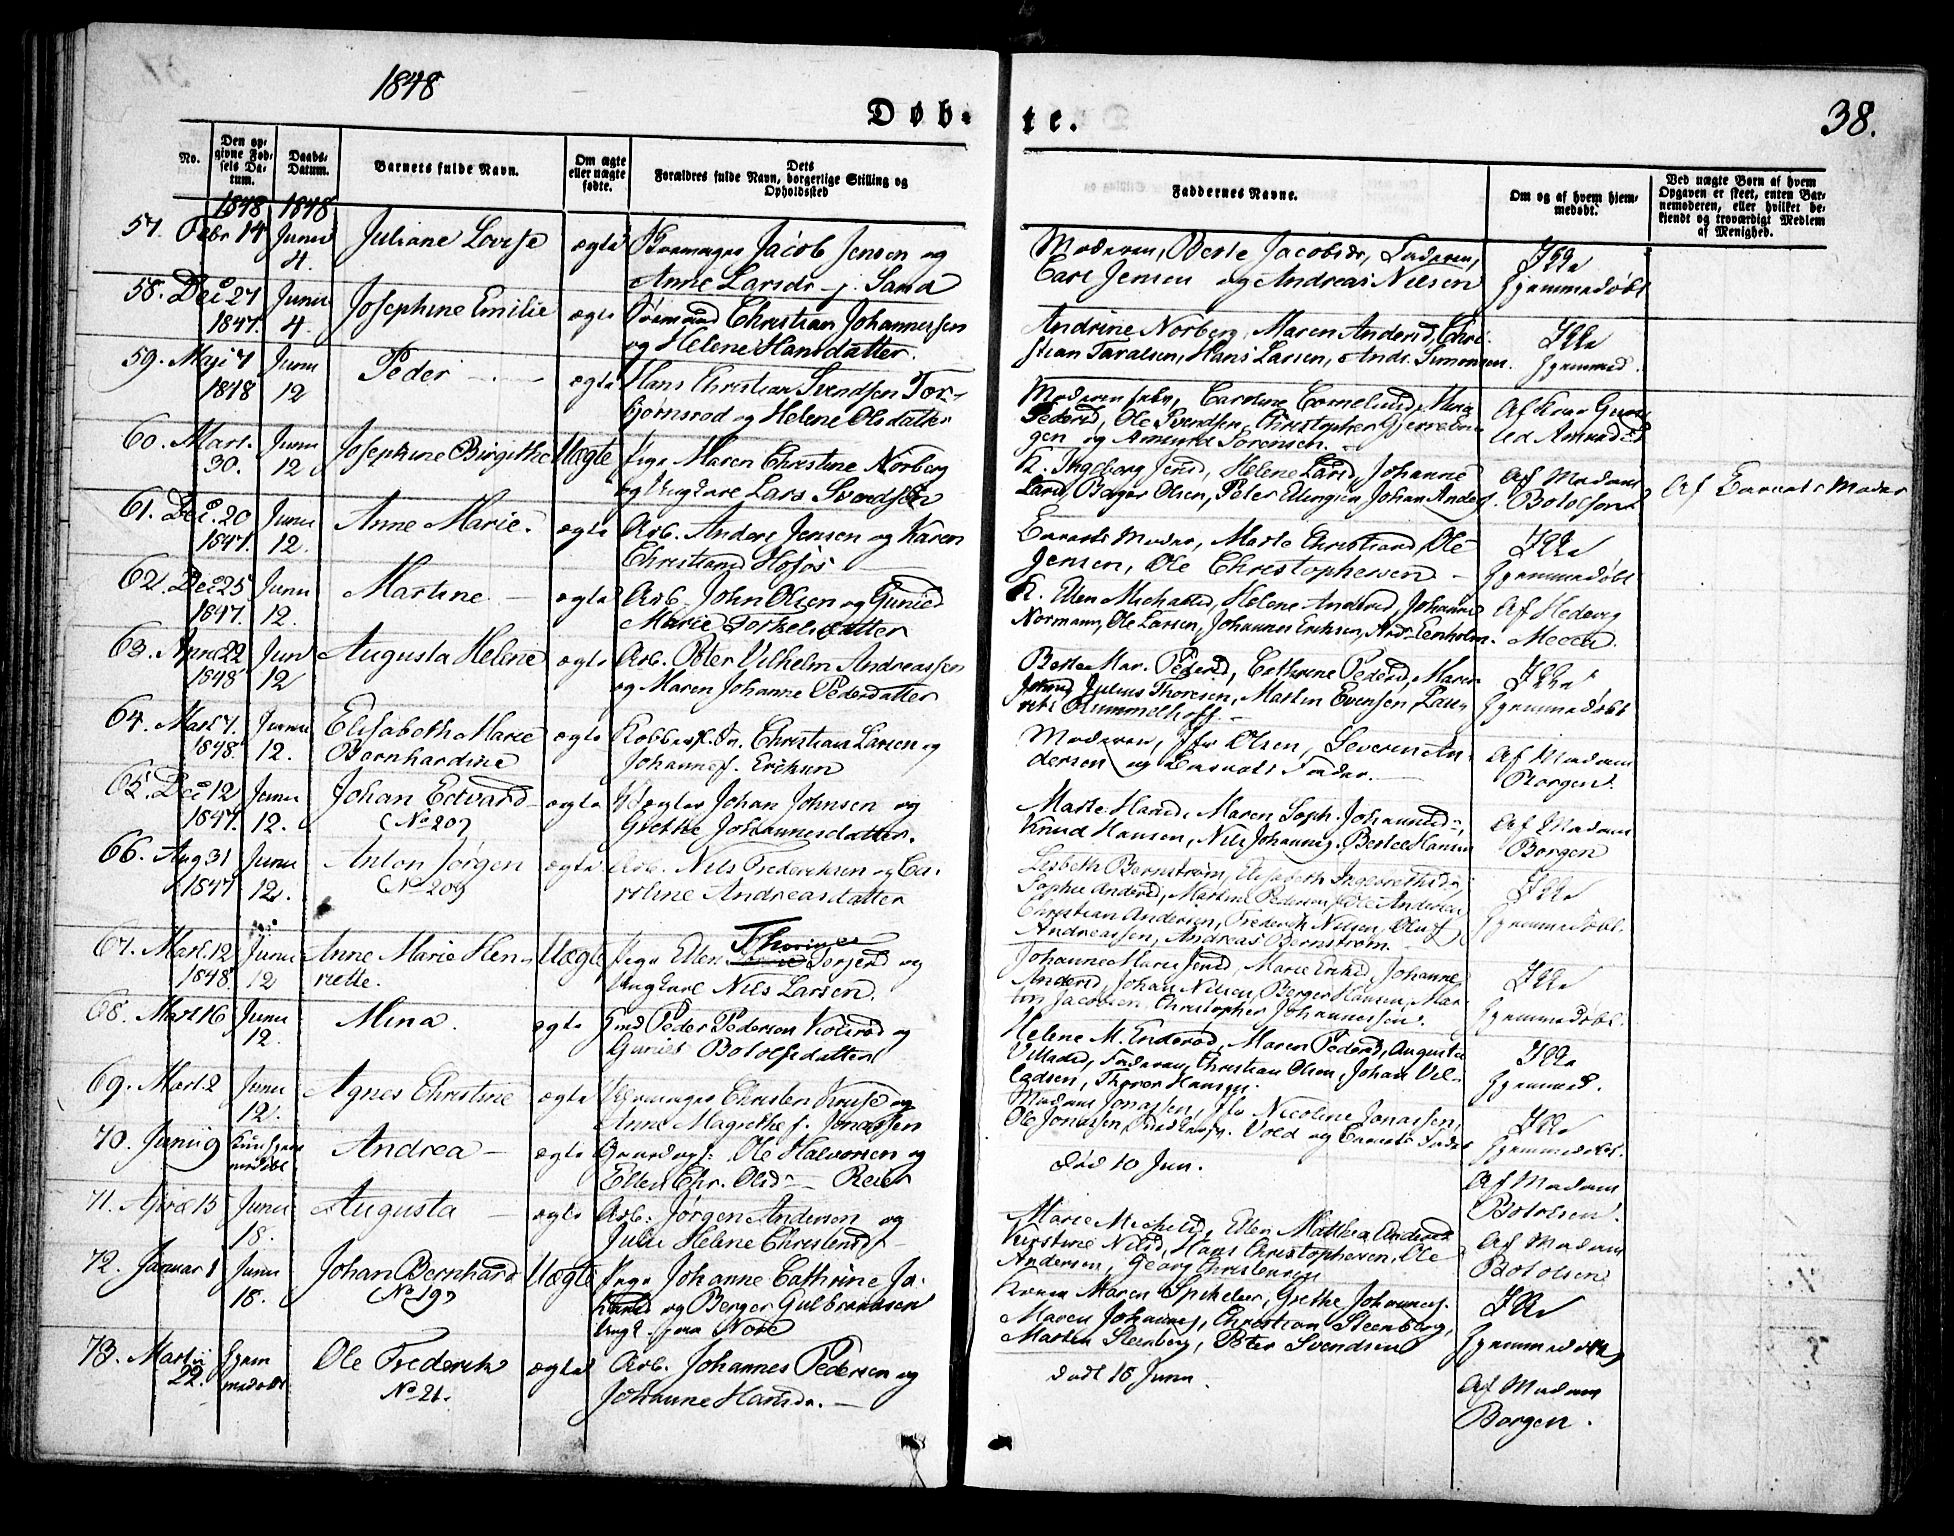 1848
Døb-
te.
38.
No.
Den op-
givne Fød-
sels Da-
tum.
Daabs-
Datum.
Barnets fulde Navn.
Om ægte
eller uægte
fødte.
Dets
Forældres fulde Navn, borgerlige Stilling og
Opholdssted
Faddernes Navne.
Om og af hvem hjem-
medøbt.
Ved uægte Børn af hvem
Opgaven er skeet, enten Bar-
nemoderen, eller hvilket be-
kjendt og troværdigt Medlem
af Menighed.
1848 1848
57. Febr 14 Junii 4. Juliane Lovise ægte Jacob Jensen og
Anne Larsdr
Moderen, Berte Jacobsdr, Faderen,
Carl Jensen og Andreas Nielsen
Ikke
hjemmedøbt
58. Dec 27 1847. Junii 4. Josephine Emilie ægte Sømand Christian Johannessen
og Helene Hansdatter.
Andrine Norberg, Maren Andersd, Chri-
stian Taralsen, Hans Larsen, Andr. Simonsen.
Ikke
hjemmed.
59. Maji 7 1848 Junii 12 Peder ægte Hans Christian Svendsen Tor-
bjørnsrød og Helene Olsdatter
Moderen selv, Caroline Cornelius, Maria
Pedersd, Ole Svendsen, Christopher
gen og Amund Sørensen.
Af
Amundsd
60. Mart. 30. Junii 12 Josephine Birgithe Uægte Pige Maren Christine Norberg
og Ungkarl Lars Svendsen
K. Ingeborg Jensd, Helene Larsd, Johanne
Larsd, Borger Olsen, Peter Ellingsen Johan Anders.
Af Madam
Botolfsen
Af Barnets Moder
61. Dec. 20 1847. Junii 12. Anne Marie. ægte Arb. Anders Jensen og Karen
Christiansd
Barnets Moder, Marte Christiansd, Ole
Jensen, Ole Christophersen
Ikke
hjemmedøbt
62. Dec 25 1847. Junii 12. Martine ægte Arb. John Olsen og Gunild
Marie Torkelsdatter
K. Ellen Michelsd, Helene Andersd, Johannes
Normann, Ole Larsen, Johannes Eriksen, Andr. Eenholm.
Af Hedevig
63. April 22 1848 Juni 12 Augusta Helene ægte Arb. Peter Vilhelm Andreassen
og Maren Johanne Pedersdatter
Berte Mar. Pedersd, Cathrine Pedersd, Maren
Julius Thoresen, Martin Evensen, Lau-
rits Rummelhoff.
Ikke
hjemmedøbt
64. Mart 7. 1848. Junii 12. Elisabeth Marie
Bernhardine ægte Christian Larsen og
Johanne f. Eriksen
Moderen, Jfr Olsen, Severin An-
dersen og Barnets Fader.
Af Madam
Borgen.
65. Dec 12 1847. Junii 12. Johan Edvard
(No 20) ægte Johan Johnsen og
Grethe Johannesdatter.
Marte Hansd, Maren Soph. Johannesd,
Knud Hansen, Nils Johannes. Hansen
Af Madam
Borgen
66. Aug 31 1847 Junii 12. Anton Jørgen
(No 20) ægte Arb. Nils Frederiksen og Ca-
roline Andreasdatter
Lisbeth Bernstrøm, Elisabeth
Sophie Andersd, Martine Pedersen, Ole Andersen
Christian Andersen, Frederik Nilsen, Oluf
Andreassen, Andreas Bernstrøm.
Ikke
hjemmedøbt.
67. Mart. 12 1848. Junii 12 Anne Marie Hen-
riette. Uægte Pige Ellen Thorine Torjersd og
Ungkarl Nils Larsen.
Johanne Marie Jensd, Marie Eriksd, Johanne
Andersd, Johan Nilsen, Berger Hansen, Mar-
tin Jacobsen, Christopher Johannessen.
Ikke
hjemmedøbt.
68. Mart 16 Junii 12. Mina. ægte Gmd Peder Pedersen Kolsrød og
Gunild Botolfsdatter
Helene M. Enderød, Maren Pedersd, Augusta
Villadsd, Faderen, Christian Olsen, Johan Vil-
ladsen, Thorer Hansen.
Ikke
hjemmed.
69. Mart. 2 Junii 12. Agnes Christine ægte Christen Kruse og
Anne Magrethe f. Jonassen
Madam Jonassen, Jfr Nicoline Jonassen,
Ole Jonassen, Vold og Barnets Fader
Ikke
hjemmedøbt.
70. Junii 9 Kun hjem-
medøbt Andrea ægte Ole Halvorsen og
Ellen Chr. Olsdr Reier
død 10 Jun.
Af Madam
Botolfsen.
71. April 15 Junii 18. Augusta ægte Arb. Jørgen Andersen og
Julie Helene Christensd
Marie Michelsd, Ellen Mathea Andersd
Kirstine Nilsd, Hans Christophersen, Ole
Andersen, Georg Christensen
Af Madam
Botolfsen
72. Januar 1 Junii 18. Johan Bernhard
(No 19) Uægte Pige Johanne Cathrine Jo-
hansd og Berger Gulbrandsen
Ungk. fra
Kone Maren Spikeber, Grethe Johannes.
Maren Johannes, Christian Steenberg,
Martin Steenberg, Peter Svendsen
Ikke
hjemmedøbt
73. Martii 22. Hjem
medøbt Ole Frederik
No 21. ægte Arb. Johannes Pedersen og
Johanne Hansdr.
død 18 Junii.
Af Madam
Borgen.